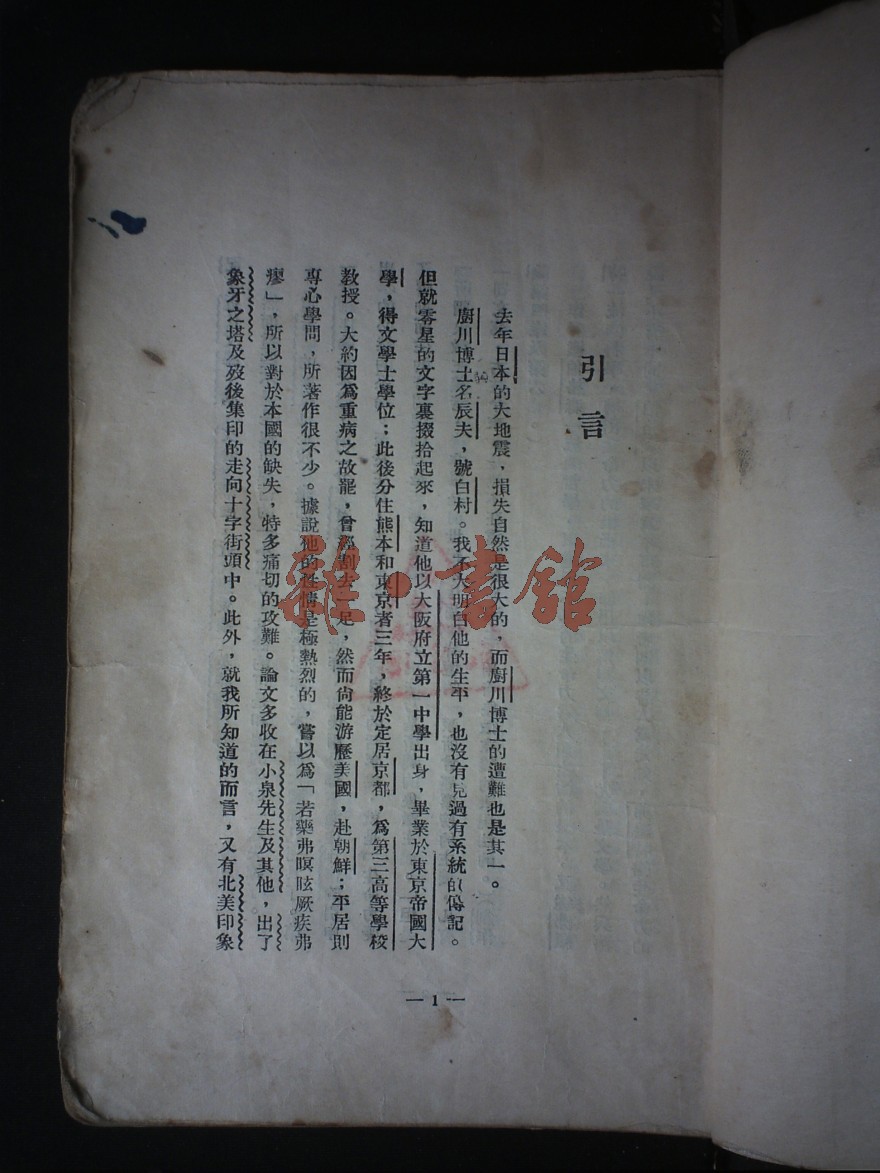 引言
去年日本的大地震,損失自然是很大的,而廚川博士的遭難也是其一。
廚川博士名辰夫,號白村。我不大明白他的生平,也沒有見過有系統的傳記。
但就零星的文字裏掇拾起來,知道他以大阪府立第一中學出身,畢業於東京帝國大
學,得文學士學位;此後分住熊本和東京者三年,終於定居京都,爲第三高等學校
教授。大約因爲重病之故罷,曾經割去一足,然而尙能游歷美國,赴朝鮮;平居則
專心學問,所著作很不少。據說他的性情是極熱烈的,嘗以爲「若藥弗暝眩厥疾弗
瘳」,所以對於本國的缺失,特多痛切的攻難。論文多收在小泉先生及其他,出了
象牙之塔及歿後集印的走向十字街頭中。此外,就我所知道的而言,又有北美印象
— 1 —
雜·書館